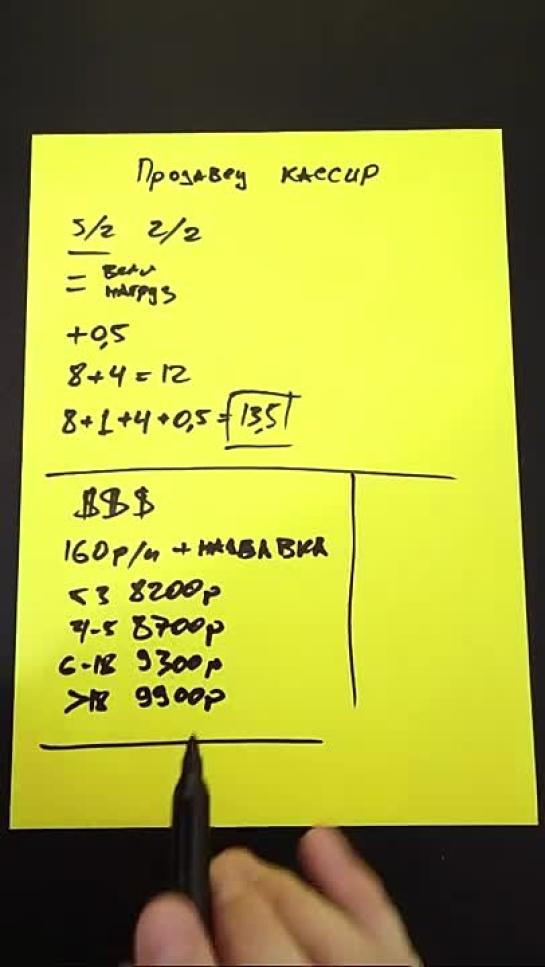 Продавец кассир
5/2 2/2
=
нагруз
+0,5
8+4=12
8+1+4+0,5=13,5
$$$
160р/ч + надбавка
<3 8200р
4-5 8700р
6-18 9300р
>18 9900р